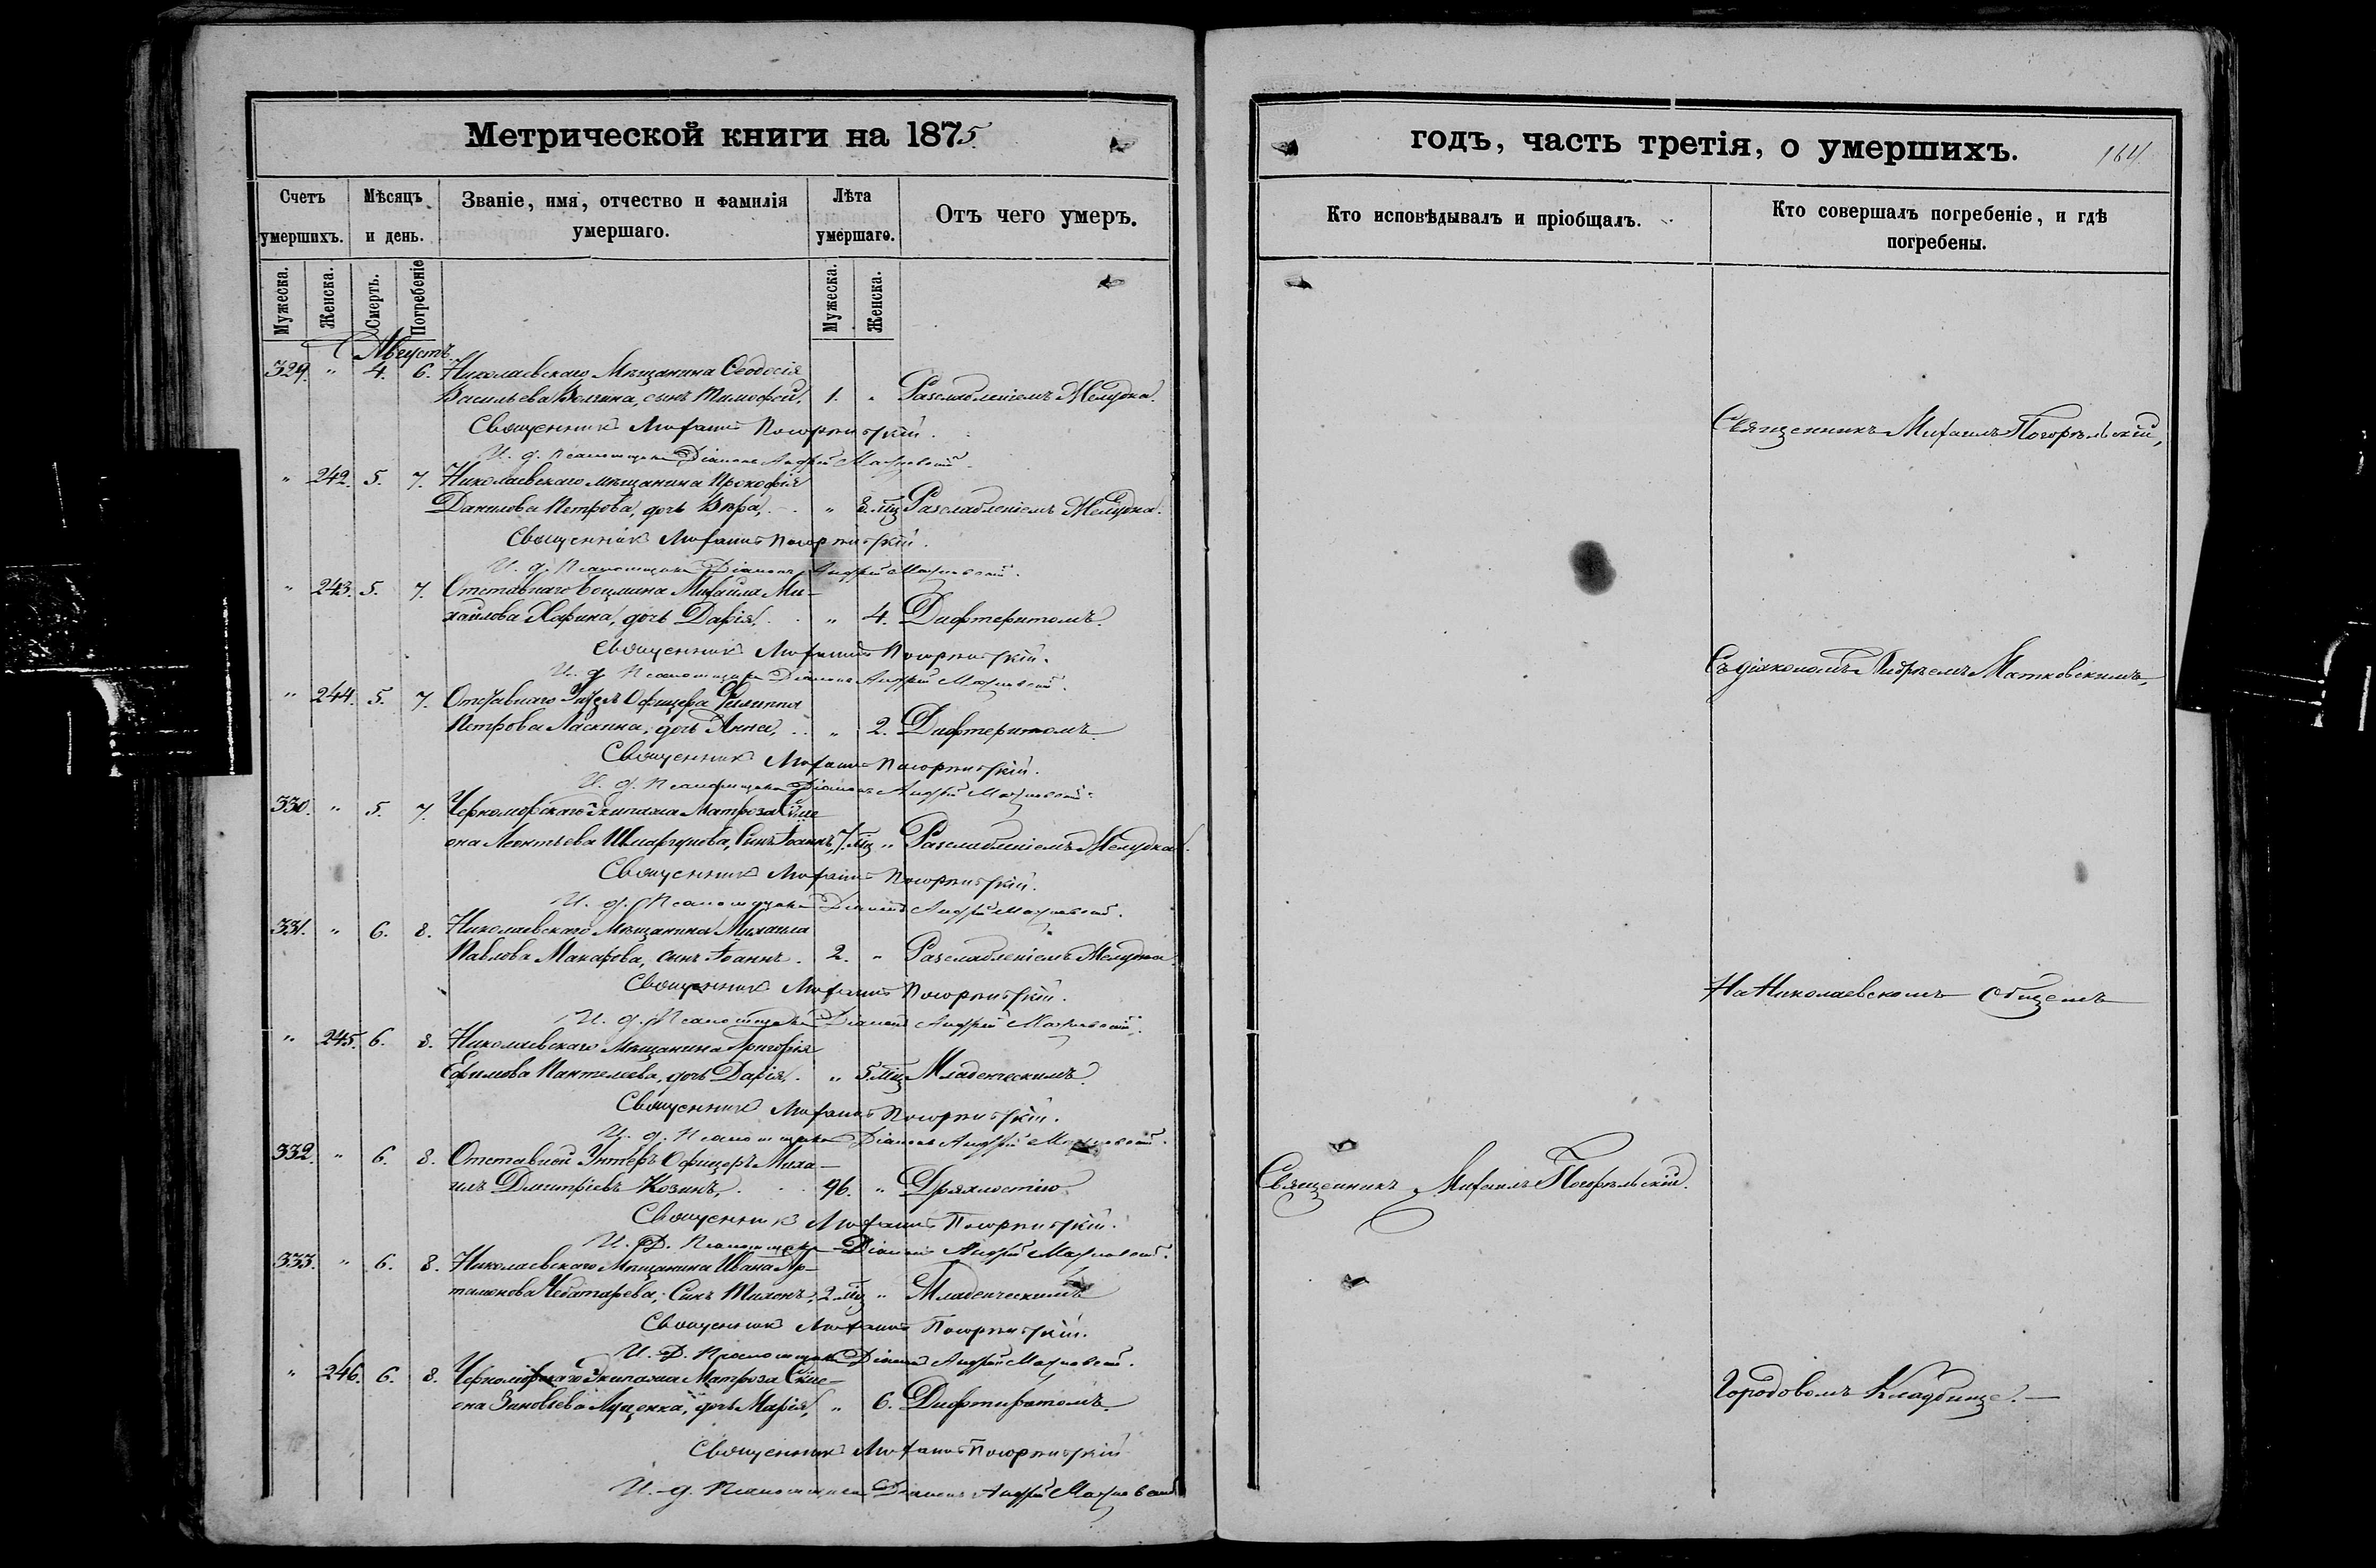 Метрической книги на 1875
Счетъ умершихъ.
Мѣсяцъ и день.
Званіе, имя, отчество и фамилія умершаго.
Лѣта умершаго.
Отъ чего умеръ.
Мужеска.
Женска.
Смерть.
Погребеніе
Мужеска.
Женска.
Августъ
329. " 4. 6. Николаевскаго Мѣщанина Ѳеодосія
Васильева Волгина, сынъ Тимофей, 1. " Разслабленіемъ Желудка.
Священникъ Михаилъ Погорѣльскій.
И. д. Псаломщика Діаконъ Андрей Матковскій.
" 242. 5. 7. Николаевскаго мѣщанина Прокофія
Данилова Петрова, дочь Вѣра, " 8. мц Разслабленіемъ Желудка.
Священникъ Михаилъ Погорѣльскій.
И. д. Псаломщика Діаконъ Андрей Матковскій.
" 243. 5. 7. Отставнаго Боцмана Михаила Ми-
хайлова Харина, дочь Дарія, " 4. Дифтеритомъ.
Священникъ Михаилъ Погорѣльскій.
И. д. Псаломщика Діаконъ Андрей Матковскій.
" 244. 5. 7. Отставнаго Унтеръ Офицера Филиппа
Петрова Ласкина, дочь Анна, " 2. Дифтеритомъ.
Священникъ Михаилъ Погорѣльскій.
И. д. Псаломщика Діаконъ Андрей Матковскій.
330. " 5. 7. Черноморскаго Экипажа Матроза Симе-
она Леонтьева Сынъ Іоаннъ, 7. мц " Разслабленіемъ Желудка.
Священникъ Михаилъ Погорѣльскій.
И. д. Псаломщика Діаконъ Андрей Матковскій.
331. " 6. 8. Николаевскаго Мѣщанина Михаила
Павлова Макарова, сынъ Іоаннъ. 2. " Разслабленіемъ Желудка.
Священникъ Михаилъ Погорѣльскій.
И. д. Псаломщика Діаконъ Андрей Матковскій.
" 245. 6. 8. Николаевскаго Мѣщанина Григорія
Ефимова Пантелеева, дочь Дарія. " 5. мц Младенческимъ.
Священникъ Михаилъ Погорѣльскій.
И. д. Псаломщика Діаконъ Андрей Матковскій.
332. " 6. 8. Отставной Унтеръ Офицеръ Миха-
илъ Дмитріевъ Козинъ, 96. " Дряхлостію
Священникъ Михаилъ Погорѣльскій.
И. Д. Псаломщика Діаконъ Андрей Матковскій.
333. " 6. 8. Николаевскаго Мѣщанина Ивана Ар-
тамонова Чеботарева, Сынъ Тихонъ, 2. мц " Младенческимъ
Священникъ Михаилъ Погорѣльскій.
И. Д. Псаломщика Діаконъ Андрей Матковскій.
" 246. 6. 8. Черноморскаго Экипажа Матроза Симе-
она Зиновьева Луценка, дочь Марія, " 6. Дифтиритомъ.
Священникъ Михаилъ Погорѣльскій
И. д. Псаломщика Діаконъ Андрей Матковскій
годъ, часть третія, о умершихъ.
164.
Кто исповѣдывалъ и пріобщалъ.
Кто совершалъ погребеніе, и гдѣ погребены.
Священникъ Михаилъ Погорѣльскій,
Съ діакономъ Андреемъ Матковскимъ,
На Николаевскомъ общемъ
Священникъ Михаилъ Погорѣльскій.
Городовомъ Кладбище. —